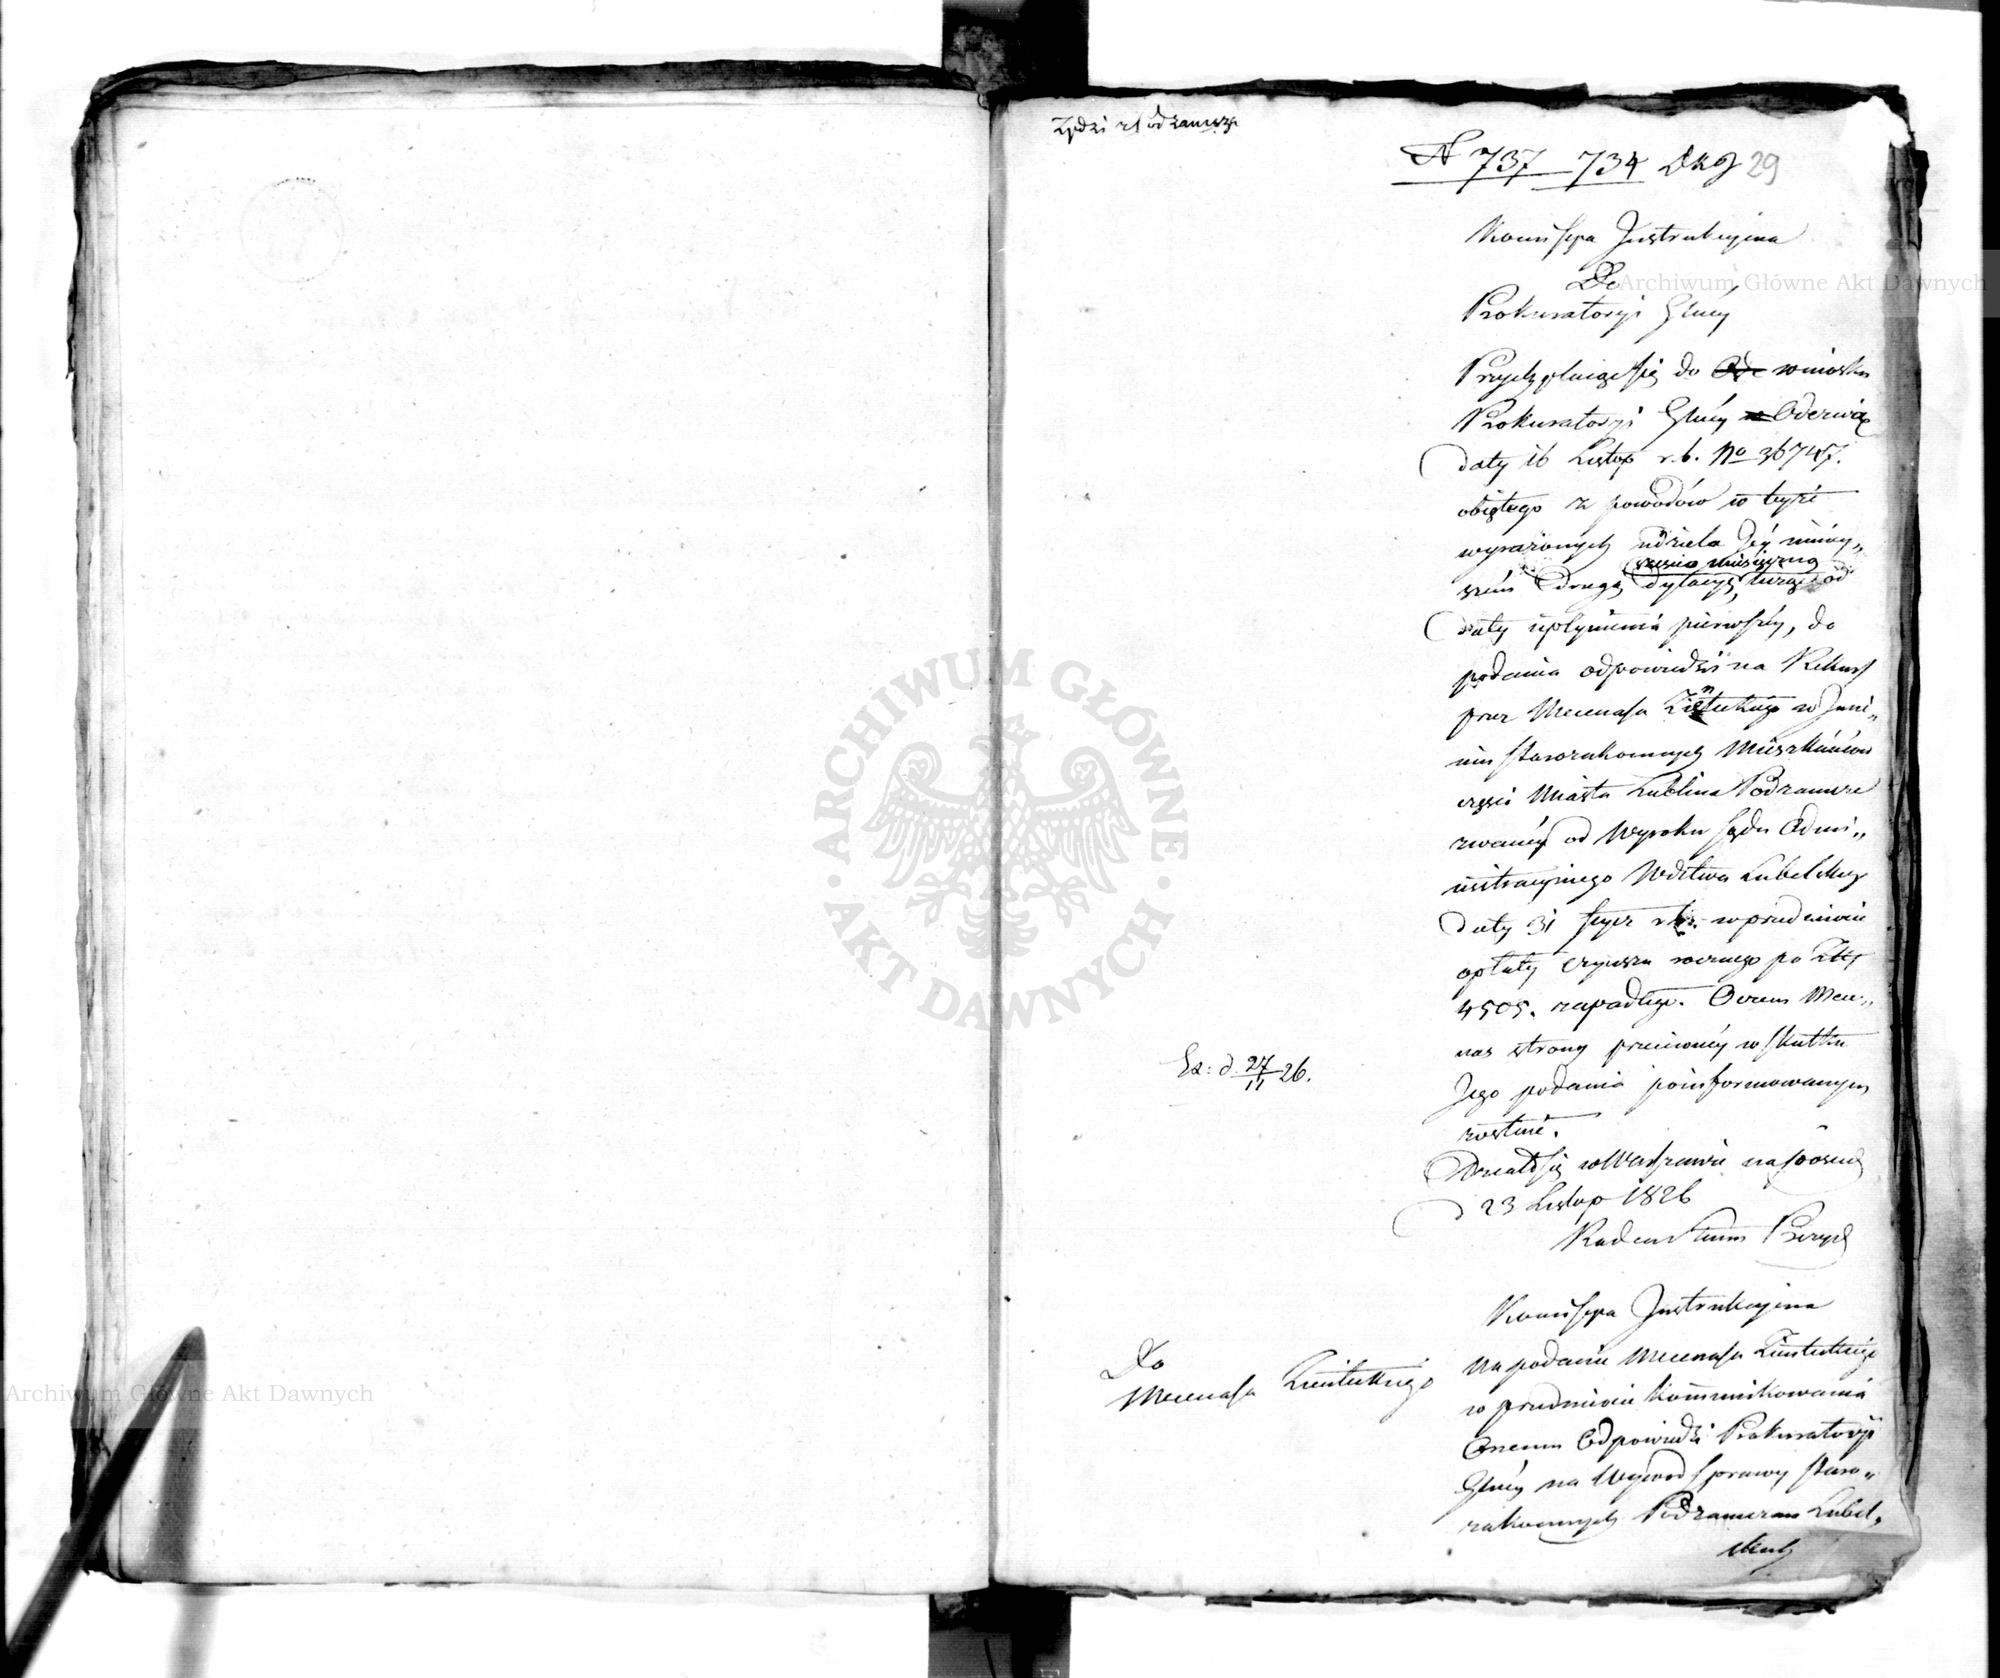 Żydzi z Podzamcza
N 737 734 DKG 29
Kommissya Instrukcyina
Do
Prokuratoryi Głney
Przychylaiąc się do wniosku
Prokuratoryi Głney Odezwą
daty 16 Listop r.b. No 36747.
obiętego z powodów w teyże
wyrażonych udziela Jey niniey„
szém drugą dylacyę sześcio miesięczną od
daty upłynienia pierwszey, do
podania odpowiedzi na Rekurs
przez Mecenasa w Imie„
niu starozakonnych Mieszkańców
części Miasta Lublina Podzamcze
zwaney od Wyroku Sądu Admi„
nistracyinego Wdztwa Lubelskgo
daty 31 r.b. w przedmiocie
opłaty czynszu rocznego po Złt
4505. zapadłego. O czem Mece„
nas strony przeciwney w skutku
Jego podania poinformowanym
zostanie.
Działo się w Warszawie na sessyi
d 23 Listop 1826
Radca Stanu Prezyd
Ex: d. 27/11 26.
Kommissya Instrukcyina
Do
Mecenasa
Na podanie Mecenasa
w przedmiocie kommunikowania
Onemu Odpowiedzi Prokuratoryi
Głney na Wywod sprawy staro„
zakonnych Podzamczan Lubel„
skich
Archiwum Główne Akt Dawnych
ARCHIWUM GŁÓWNE AKT DAWNYCH
Archiwum Główne Akt Dawnych